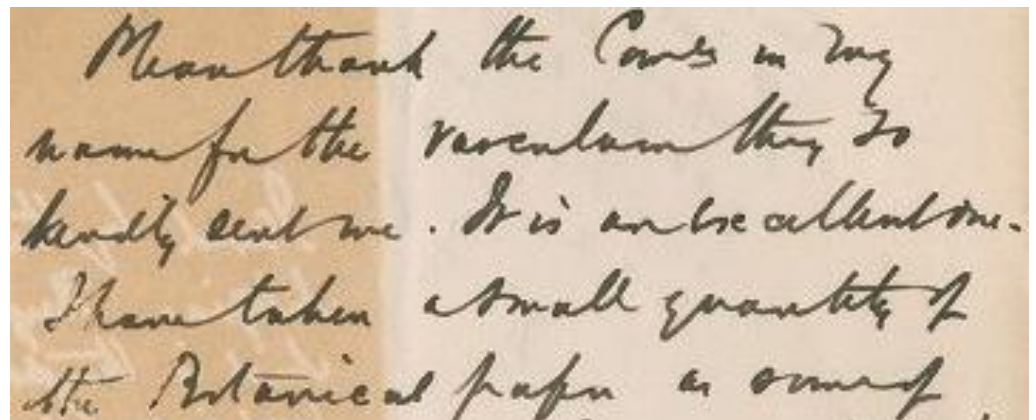 Please thank the Comee in my
name for the vasculum they so
kindly sent me. It is an excellent one.
I have taken a small quantity of
the Botanical paper as some of